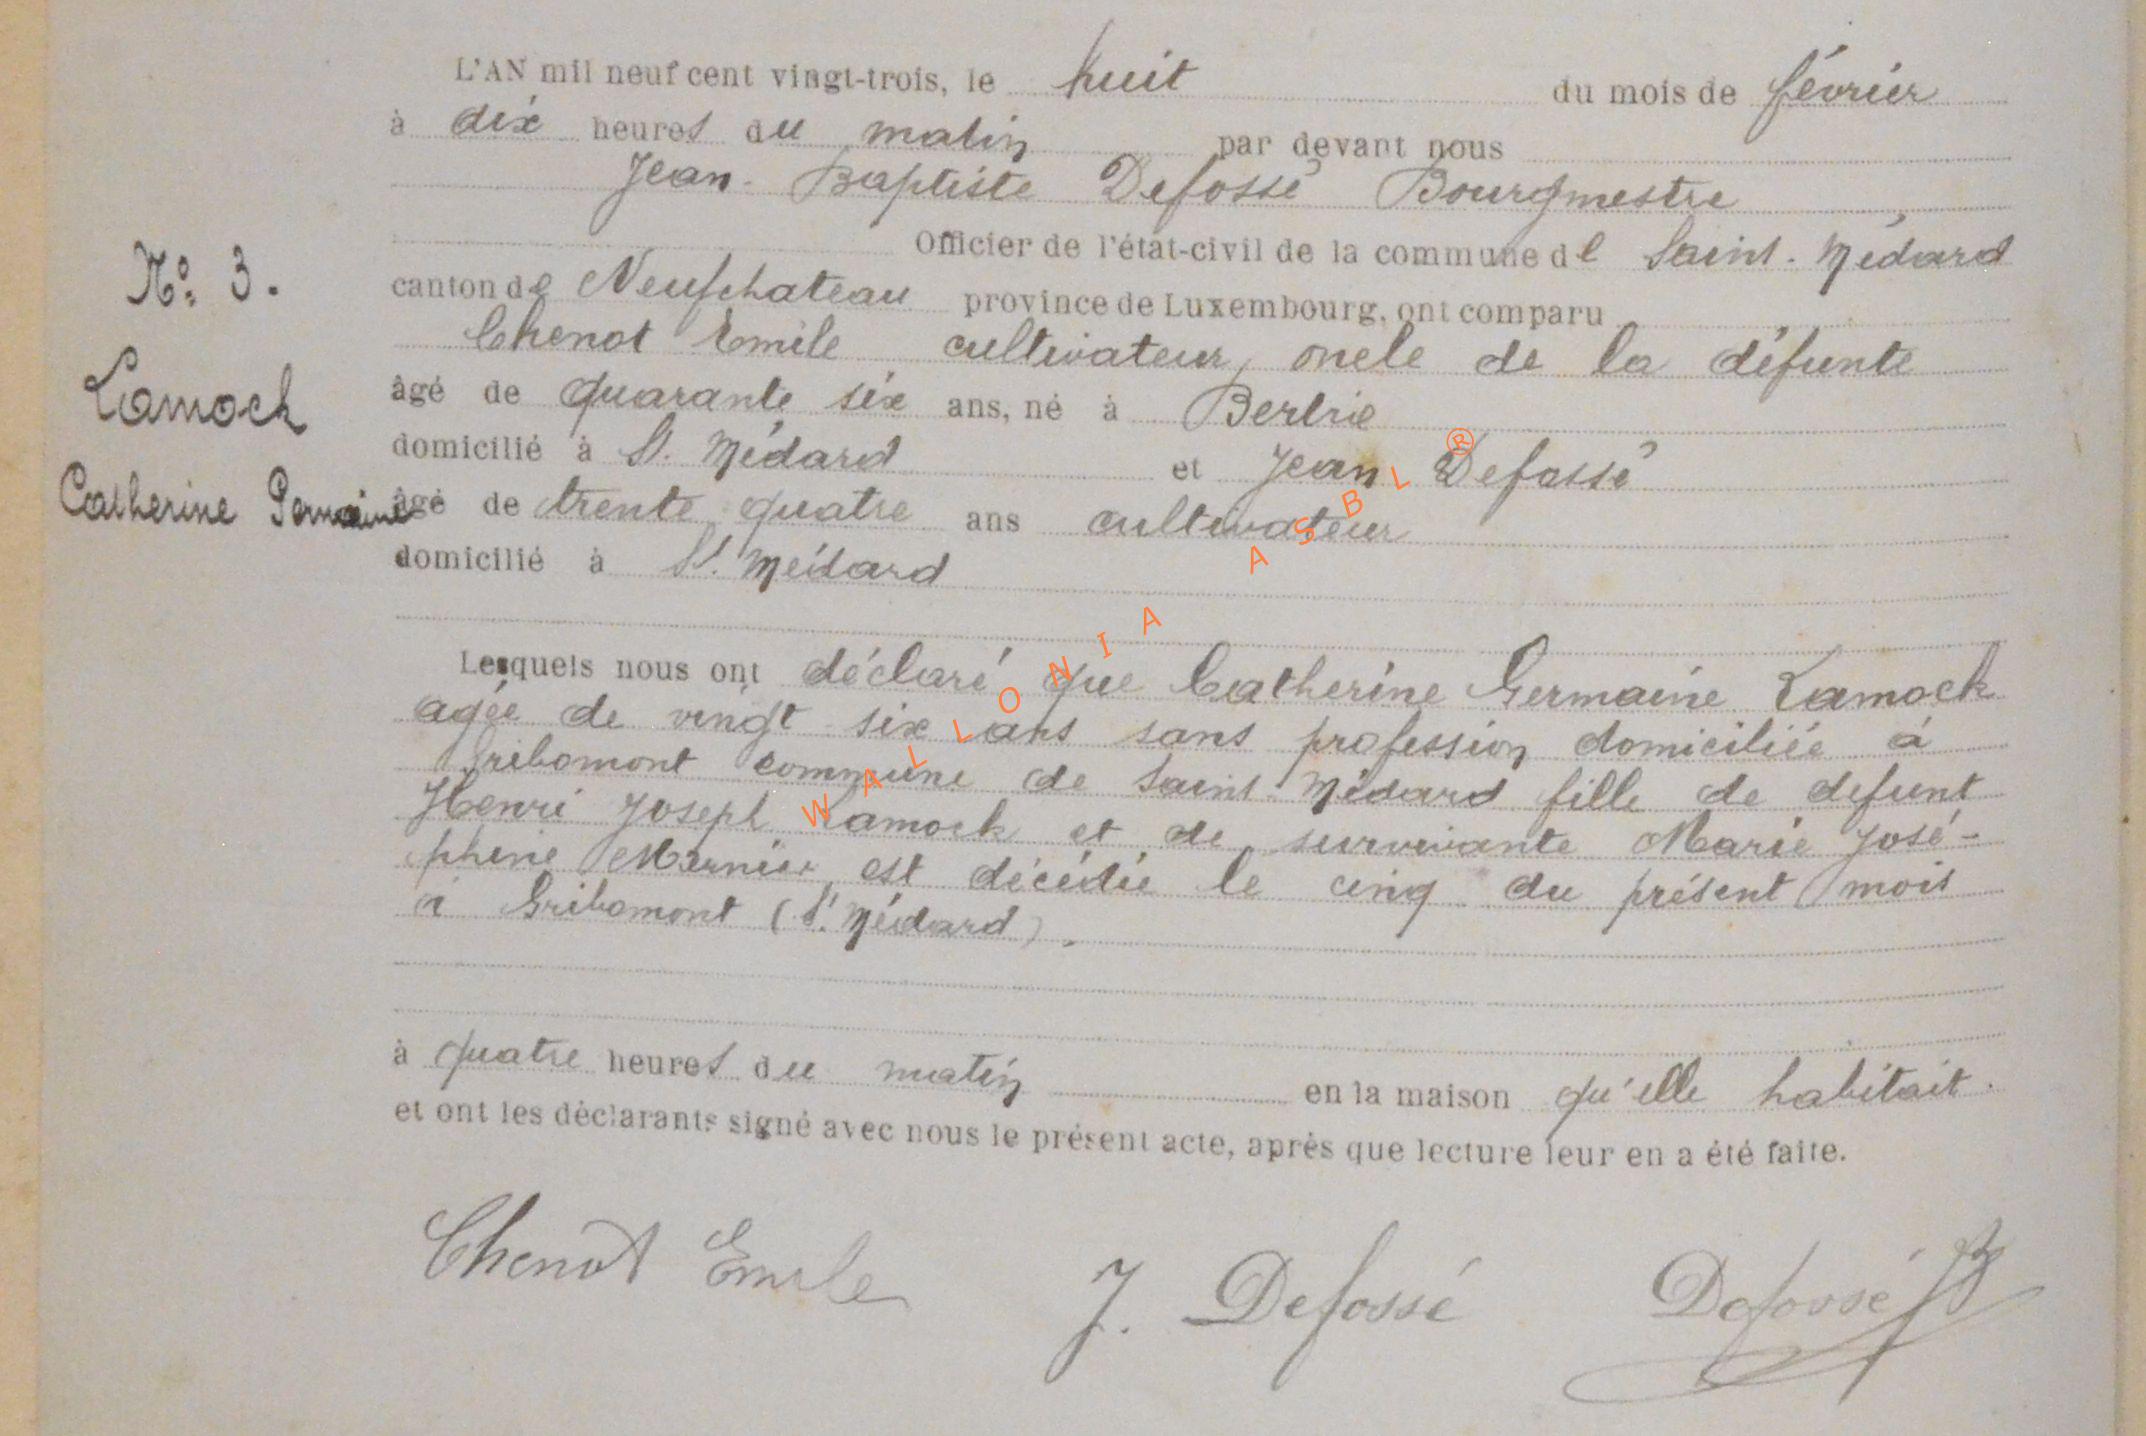 L'AN mil neuf cent vingt-trois, le huit du mois de février
à dix heures du matin par devant nous
Jean-Baptiste Defossé Bourgmestre
Officier de l'état-civil de la commune de Saint-Médard
canton de Neufchateau province de Luxembourg, ont comparu
Chenot Emile cultivateur, oncle de la défunte
âgé de quarante six ans, né à Bertrix
domicilié à St. Médard et Jean Defossé
âgé de trente quatre ans cultivateur
domicilié à St. Médard
N° 3.
Lamock
Catherine Germaine
Lesquels nous ont déclaré que Catherine Germaine Lamock
agée de vingt six ans sans profession domiciliée à
Gribomont commune de Saint-Médard fille de defunt
Henri Joseph Lamock et de survivante Marie José-
phine Marnier est décédée le cinq du présent mois
à Gribomont (St. Médard).
à quatre heures du matin en la maison qu'elle habitait.
et ont les déclarants signé avec nous le présent acte, après que lecture leur en a été faite.
Chenot Emile J. Defossé Defossé JB
WALLONIA ASBL ®